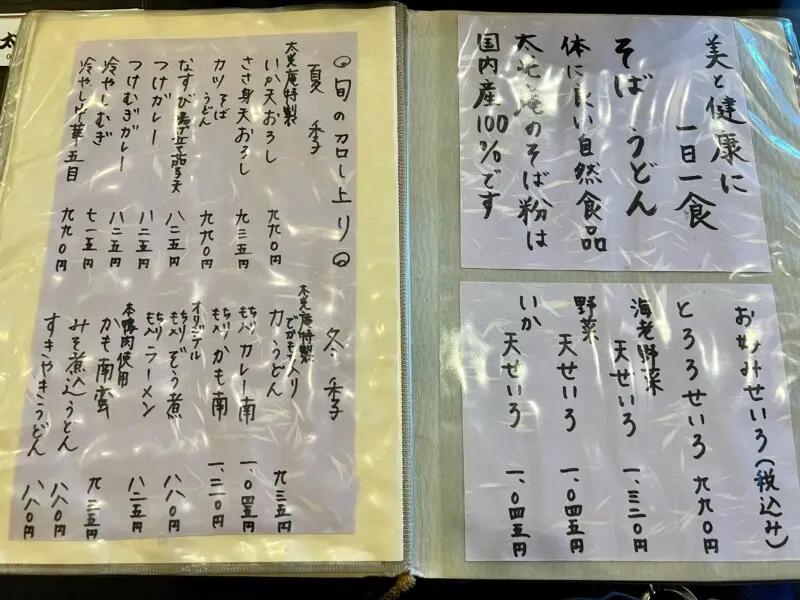 美と健康に
一日一食
そば うどん
体に良い自然食品
太光庵のそば粉は
国内産100%です
お好みせいろ(税込み)
とろろせいろ 九九〇円
海老野菜
天せいろ 一、三二〇円
野菜
天せいろ 一、〇四五円
いか
天せいろ 一、〇四五円
旬の召し上り
夏 季
太光庵特製
いか天おろし 九九〇円
ささ身天おろし 九三五円
カツそば
うどん 九九〇円
なすび 天 八二五円
つけカレー 八二五円
つけむぎカレー 八二五円
冷やしむぎ 七一五円
冷やし中華五目 九九〇円
冬 季
太光庵特製
でかもち入り
力うどん 九三五円
もち入り カレー南 一、〇四五円
もち入り かも南 一、一二〇円
オリジナル
もち入り ぞう煮 八八〇円
もち入り ラーメン 八二五円
本鴨肉使用
かも南蛮 九三五円
みそ煮込うどん 八八〇円
すきやきうどん 八八〇円
太